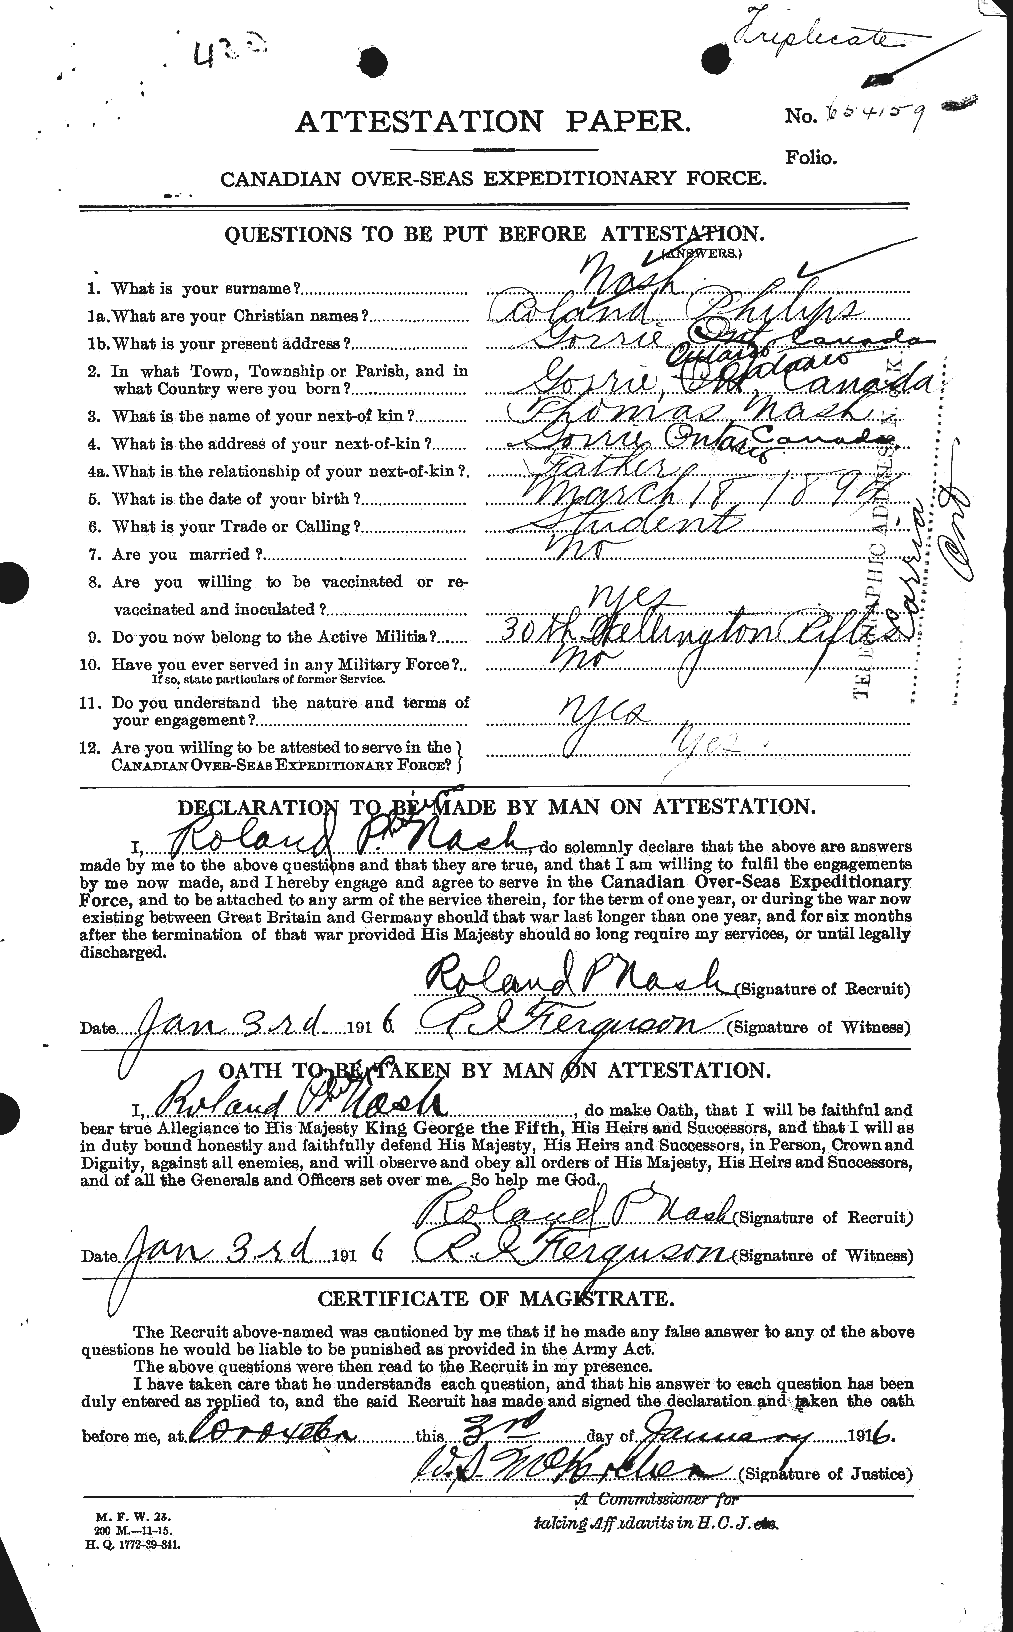 Triplicate
ATTESTATION PAPER.
No. 654159
Folio.
CANADIAN OVER-SEAS EXPEDITIONARY FORCE.
QUESTIONS TO BE PUT BEFORE ATTESTATION.
(ANSWERS.)
1. What is your surname? Nash
1a. What are your Christian names? Roland Philips
1b. What is your present address? Gorrie Ont Canada
Ontario Ontario
2. In what Town, Township or Parish, and in
what Country were you born? Gorrie, Ont, Canada
3. What is the name of your next-of kin? Thomas Nash
4. What is the address of your next-of-kin? Gorrie Ontario Canada
4a. What is the relationship of your next-of-kin? Father
5. What is the date of your birth? March 18 189
6. What is your Trade or Calling? Student
7. Are you married? No
8. Are you willing to be vaccinated or re-
vaccinated and inoculated? Yes
9. Do you now belong to the Active Militia? 30th Wellington Rifles
10. Have you ever served in any Military Force? No
If so, state particulars of former Service.
11. Do you understand the nature and terms of
your engagement? Yes
12. Are you willing to be attested to serve in the
CANADIAN OVER-SEAS EXPEDITIONARY FORCE? Yes
TELEGRAPHIC ADDRESS,
Ont
DECLARATION TO BE MADE BY MAN ON ATTESTATION.
I, Roland P. Nash, do solemnly declare that the above are answers
made by me to the above questions and that they are true, and that I am willing to fulfil the engagements
by me now made, and I hereby engage and agree to serve in the Canadian Over-Seas Expeditionary
Force, and to be attached to any arm of the service therein, for the term of one year, or during the war now
existing between Great Britain and Germany should that war last longer than one year, and for six months
after the termination of that war provided His Majesty should so long require my services, or until legally
discharged.
Roland P Nash (Signature of Recruit)
Date Jan 3rd 1916 R. I. Ferguson (Signature of Witness)
OATH TO BE TAKEN BY MAN ON ATTESTATION.
I, Roland Ph Nash, do make Oath, that I will be faithful and
bear true Allegiance to His Majesty King George the Fifth, His Heirs and Successors, and that I will as
in duty bound honestly and faithfully defend His Majesty, His Heirs and Successors, in Person, Crown and
Dignity, against all enemies, and will observe and obey all orders of His Majesty, His Heirs and Successors,
and of all the Generals and Officers set over me. So help me God.
Roland P Nash (Signature of Recruit)
Date Jan 3rd 1916 R. I. Ferguson (Signature of Witness)
CERTIFICATE OF MAGISTRATE.
The Recruit above-named was cautioned by me that if he made any false answer to any of the above
questions he would be liable to be punished as provided in the Army Act.
The above questions were then read to the Recruit in my presence.
I have taken care that he understands each question, and that his answer to each question has been
duly entered as replied to, and the said Recruit has made and signed the declaration and taken the oath
before me, at Wroxeter this 3rd day of January 1916.
(Signature of Justice)
A Commissioner for
taking Affidavits in H. C. J. etc.
M. F. W. 23.
200 M.—11-15.
H. Q. 1772-39-841.